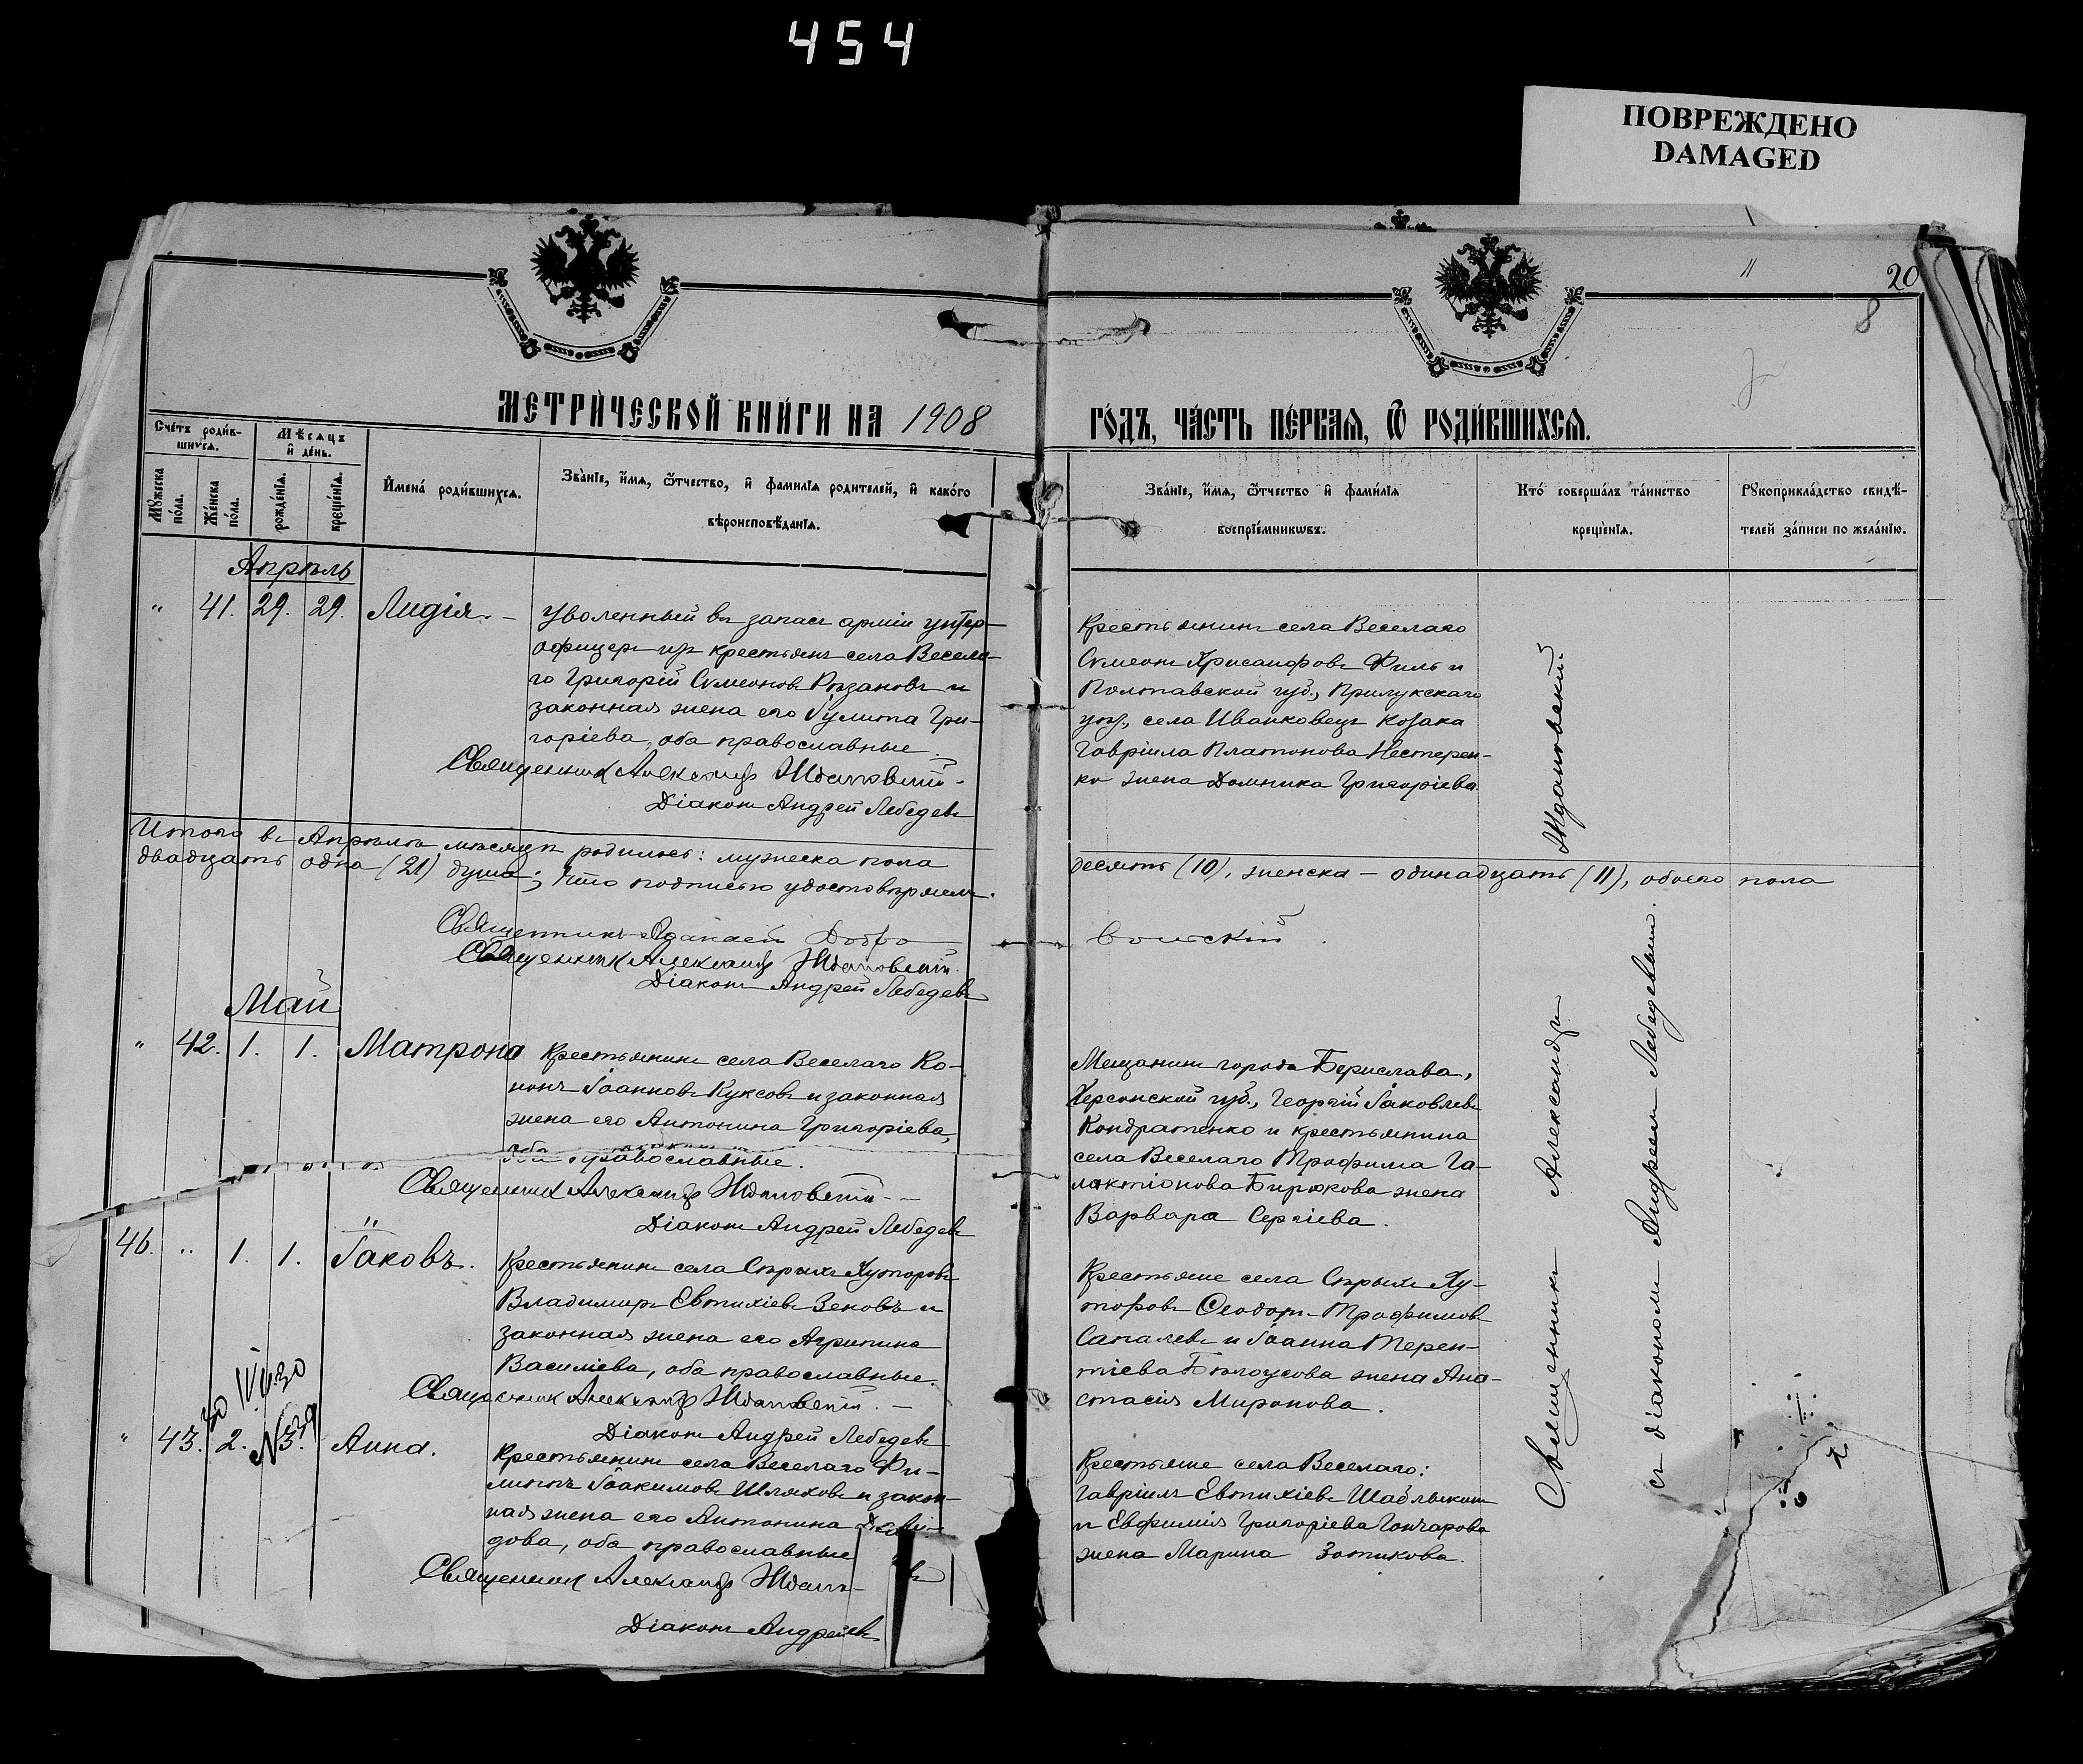 454
ПОВРЕЖДЕНО
DAMAGED
11
20
8
МЕТРИ́ЧЕСКОЙ КНИ́ГИ НА 1908
ГО́ДЪ, ЧА́СТЬ ПЕ́РВАЯ, Ѿ РОДИ́ВШИХСЯ.
Сче́тъ роди́в-
шихся.
Мѣсяцъ
и҆ де́нь.
Му́жеска
по́ла.
Же́нска
по́ла.
рожде́нїя.
креще́нїя.
И҆мена́ роди́вшихся.
Зва́нїе, и҆́мя, ѻ҆́тчество, и҆ фами́лїя родителей, и҆ како́го
вѣроисповѣ́данїя.
Зва́нїе, и҆́мя, ѻ҆́тчество и҆ фами́лїя
воспрїе́мникѡвъ.
Кто́ соверша́лъ та́инство
креще́нїя.
Рукоприкла́дство свидѣ́-
телей за́писи по жела́нїю.
Апрѣль
" 41. 29. 29. Лидія. –
Уволенный въ запасъ арміи унтер-
офицеръ изъ крестьянъ села Весела-
го Григорій Сѵмеоновъ Рязановъ и
законная жена его Іулита Гри-
горіева, оба православные.
Священникъ Александръ Ждановскій.
Діаконъ Андрей Лебедевъ
Крестьянинъ села Веселаго
Сѵмеонъ Хрисанфовъ Филь и
Полтавской губ., Прилукскаго
уѣз., села Иванковецъ козака
Гавріила Платонова Нестерен-
ко жена Домника Григоріева.
Итого въ Апрѣлѣ мѣсяцѣ родилось: мужеска пола
десять (10), женска – одинадцать (11), обоего пола
двадцать одна (21) душа; что подписью удостовѣряемъ.
Священникъ Аѳанасій Добро
вольскій.
Священникъ Александръ Ждановскій.
Діаконъ Андрей Лебедевъ
Май
" 42. 1. 1. Матрона
Крестьянинъ села Веселаго Ко-
нонъ Іоанновъ Куксовъ и законная
жена его Антонина Григоріева,
оба православные.
Священникъ Александръ Ждановскій. –
Діаконъ Андрей Лебедевъ
Мещанинъ города Берислава,
Херсонской губ., Георгій Іаковлевъ
Кондратенко и крестьянина
села Веселаго Трофима Га-
лактіонова Бирюкова жена
Варвара Сергіева.
46. " 1. 1. Іаковъ.
Крестьянинъ села Сѣрыхъ Хуторовъ
Владимиръ Евтихіевъ Зеновъ и
законная жена его Агрипина
Василіева, оба православные.
Священникъ Александръ Ждановскій. –
Діаконъ Андрей Лебедевъ
Крестьяне села Сѣрыхъ Ху-
торовъ Ѳеодоръ Трофимовъ
Сапалевъ и Іоанна Терен-
тіева Бѣлоусова жена Ана-
стасія Миронова.
" 43. 2. 3. Анна.
Крестьянинъ села Веселаго Фи-
липпъ Іоакимовъ Шляховъ и закон-
ная жена его Антонина Дави-
дова, оба православные
Священникъ Александръ Ждан-
Діаконъ Андрей
Крестьяне села Веселаго:
Гавріилъ Евтихіевъ Шаблыкинъ
и Евфимія Григоріева Гончарова
жена Марина Зотикова.
Священникъ Александръ Ждановскій
съ діакономъ Андреемъ Лебедевымъ.